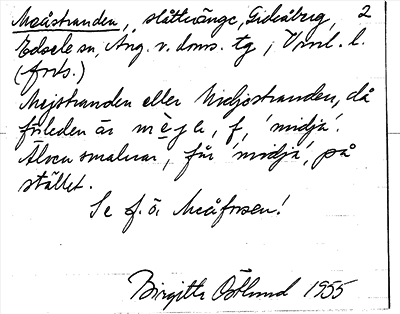 Meåstranden, slåttvänge, Gideåberg, 2
Edsele sn, Ång. v. doms. tg, Vnl. l.
(forts.)
Mejstranden eller Midjostranden, då
förleden är mèjh, f, 'midja'.
Älven smalnar, får 'midja', på
stället.
Se f.ö. Meåforsen!
Birgitta Östlund 1955